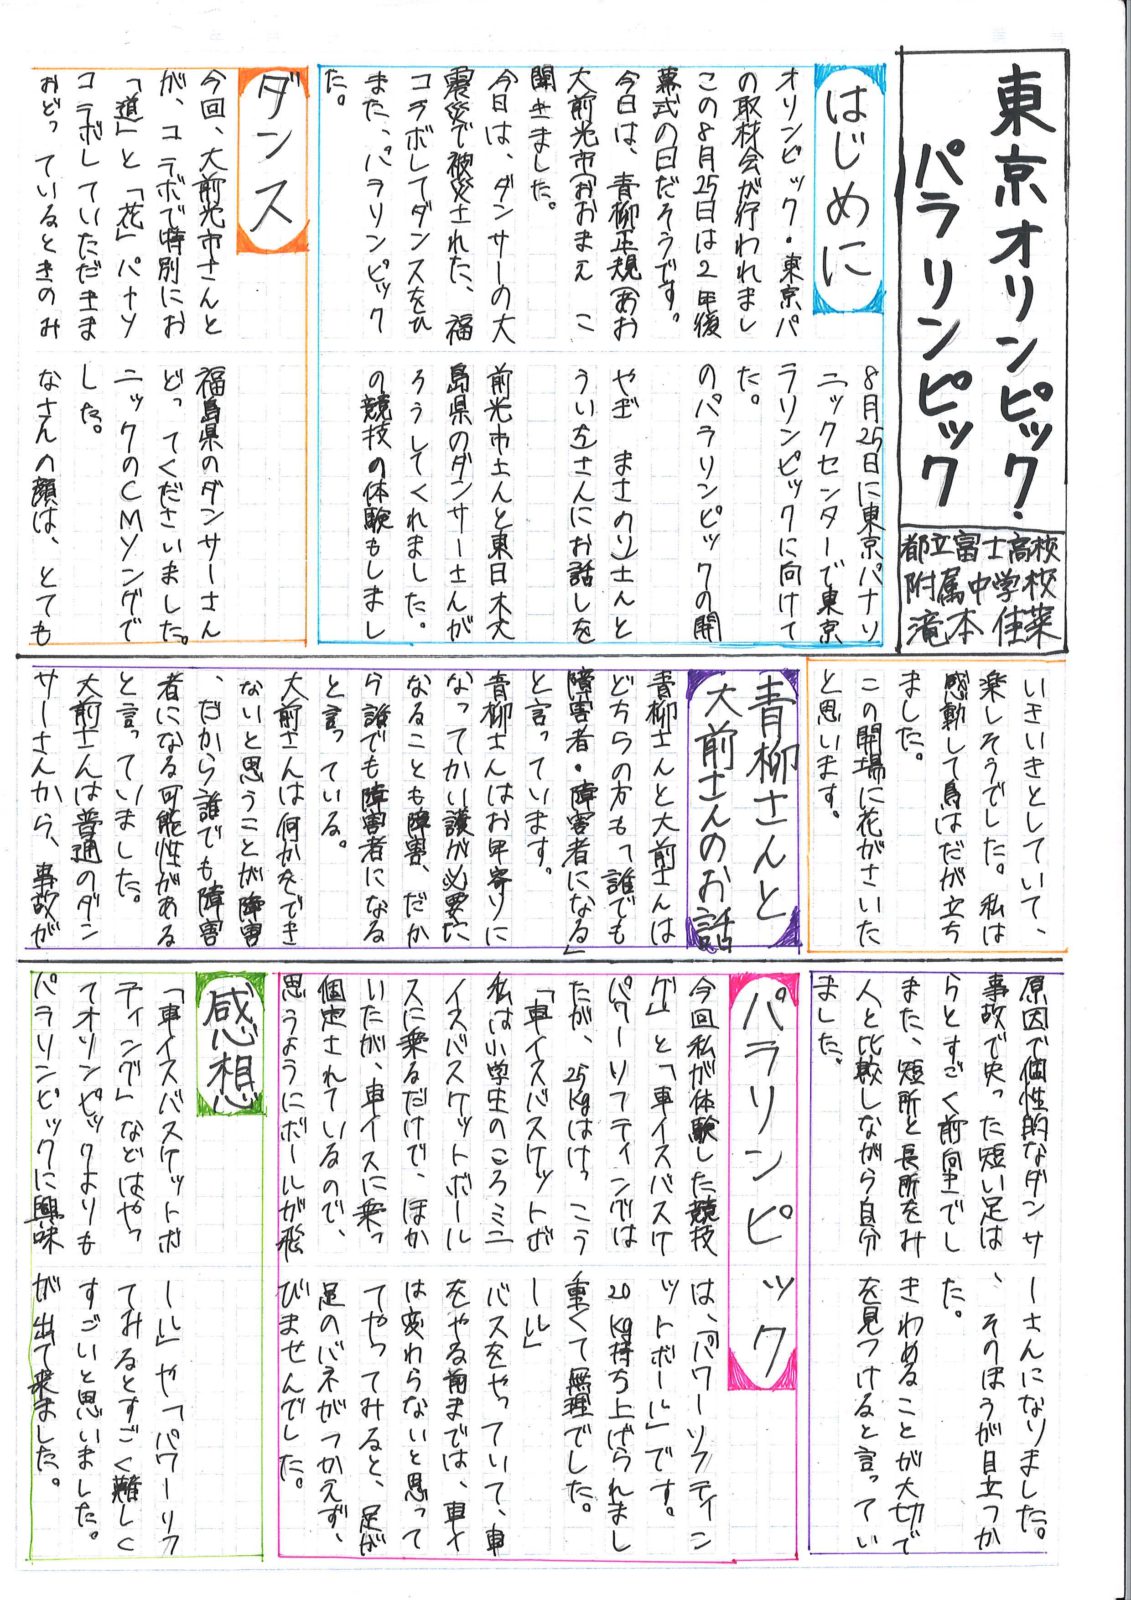 東京オリンピック・
パラリンピック
都立富士高校
附属中学校
滝本佳菜
はじめに
8月25日に東京パナソ
ニックセンターで東京
オリンピック・東京パラリンピックに向けて
の取材会が行われました。
この8月25日は2年後のパラリンピックの開
幕式の日だそうです。
今日は、青柳正規(あおやぎ まさのり)さんと
大前光市(おおまえ こういち)さんにお話しを
聞きました。
今日は、ダンサーの大前光市さんと東日本大
震災で被災された、福島県のダンサーさんが
コラボしてダンスをひろうしてくれました。
また、パラリンピックの競技の体験もしまし
た。
ダンス
今回、大前光市さんと福島県のダンサーさん
が、コラボで特別におどってくださいました。
「道」と「花」パナソニックのCMソングで
コラボしていただきました。
おどっているときのみなさんの顔は、とても
いきいきとしていて、
楽しそうでした。私は
感動して鳥はだが立ち
ました。
この開場に花がさいた
と思います。
青柳さんと
大前さんのお話
青柳さんと大前さんは
どちらの方も「誰でも
障害者・障害者になる」
と言っています。
青柳さんはお年寄りに
なってかい護が必要に
なることも障害、だか
ら誰でも障害者になる
と言っている。
大前さんは何かをでき
ないと思うことが障害
、だから誰でも障害
者になる可能性がある
と言っていました。
大前さんは普通のダン
サーさんから、事故が
原因で個性的なダンサーさんになりました。
事故で失った短い足は、そのほうが目立つか
らとすごく前向きでした。
また、短所と長所をみきわめることが大切で
人と比較しながら自分を見つけると言ってい
ました。
パラリンピック
今回私が体験した競技は、「パワーリフティン
グ」と「車イスバスケットボール」です。
パワーリフティングは20kg持ち上げられまし
たが、25kgはけっこう重くて無理でした。
「車イスバスケットボール」
私は小学生のころミニバスをやっていて、車
イスバスケットボールをやる前までは、車イ
スに乗るだけで、ほかは変わらないと思って
いたが、車イスに乗ってやってみると、足が
固定されているので、足のバネがつかえず、
思うようにボールが飛びませんでした。
感想
「車イスバスケットボール」や「パワーリフ
ティング」などはやってみるとすごく難しく
てオリンピックよりもすごいと思いました。
パラリンピックに興味が出て来ました。